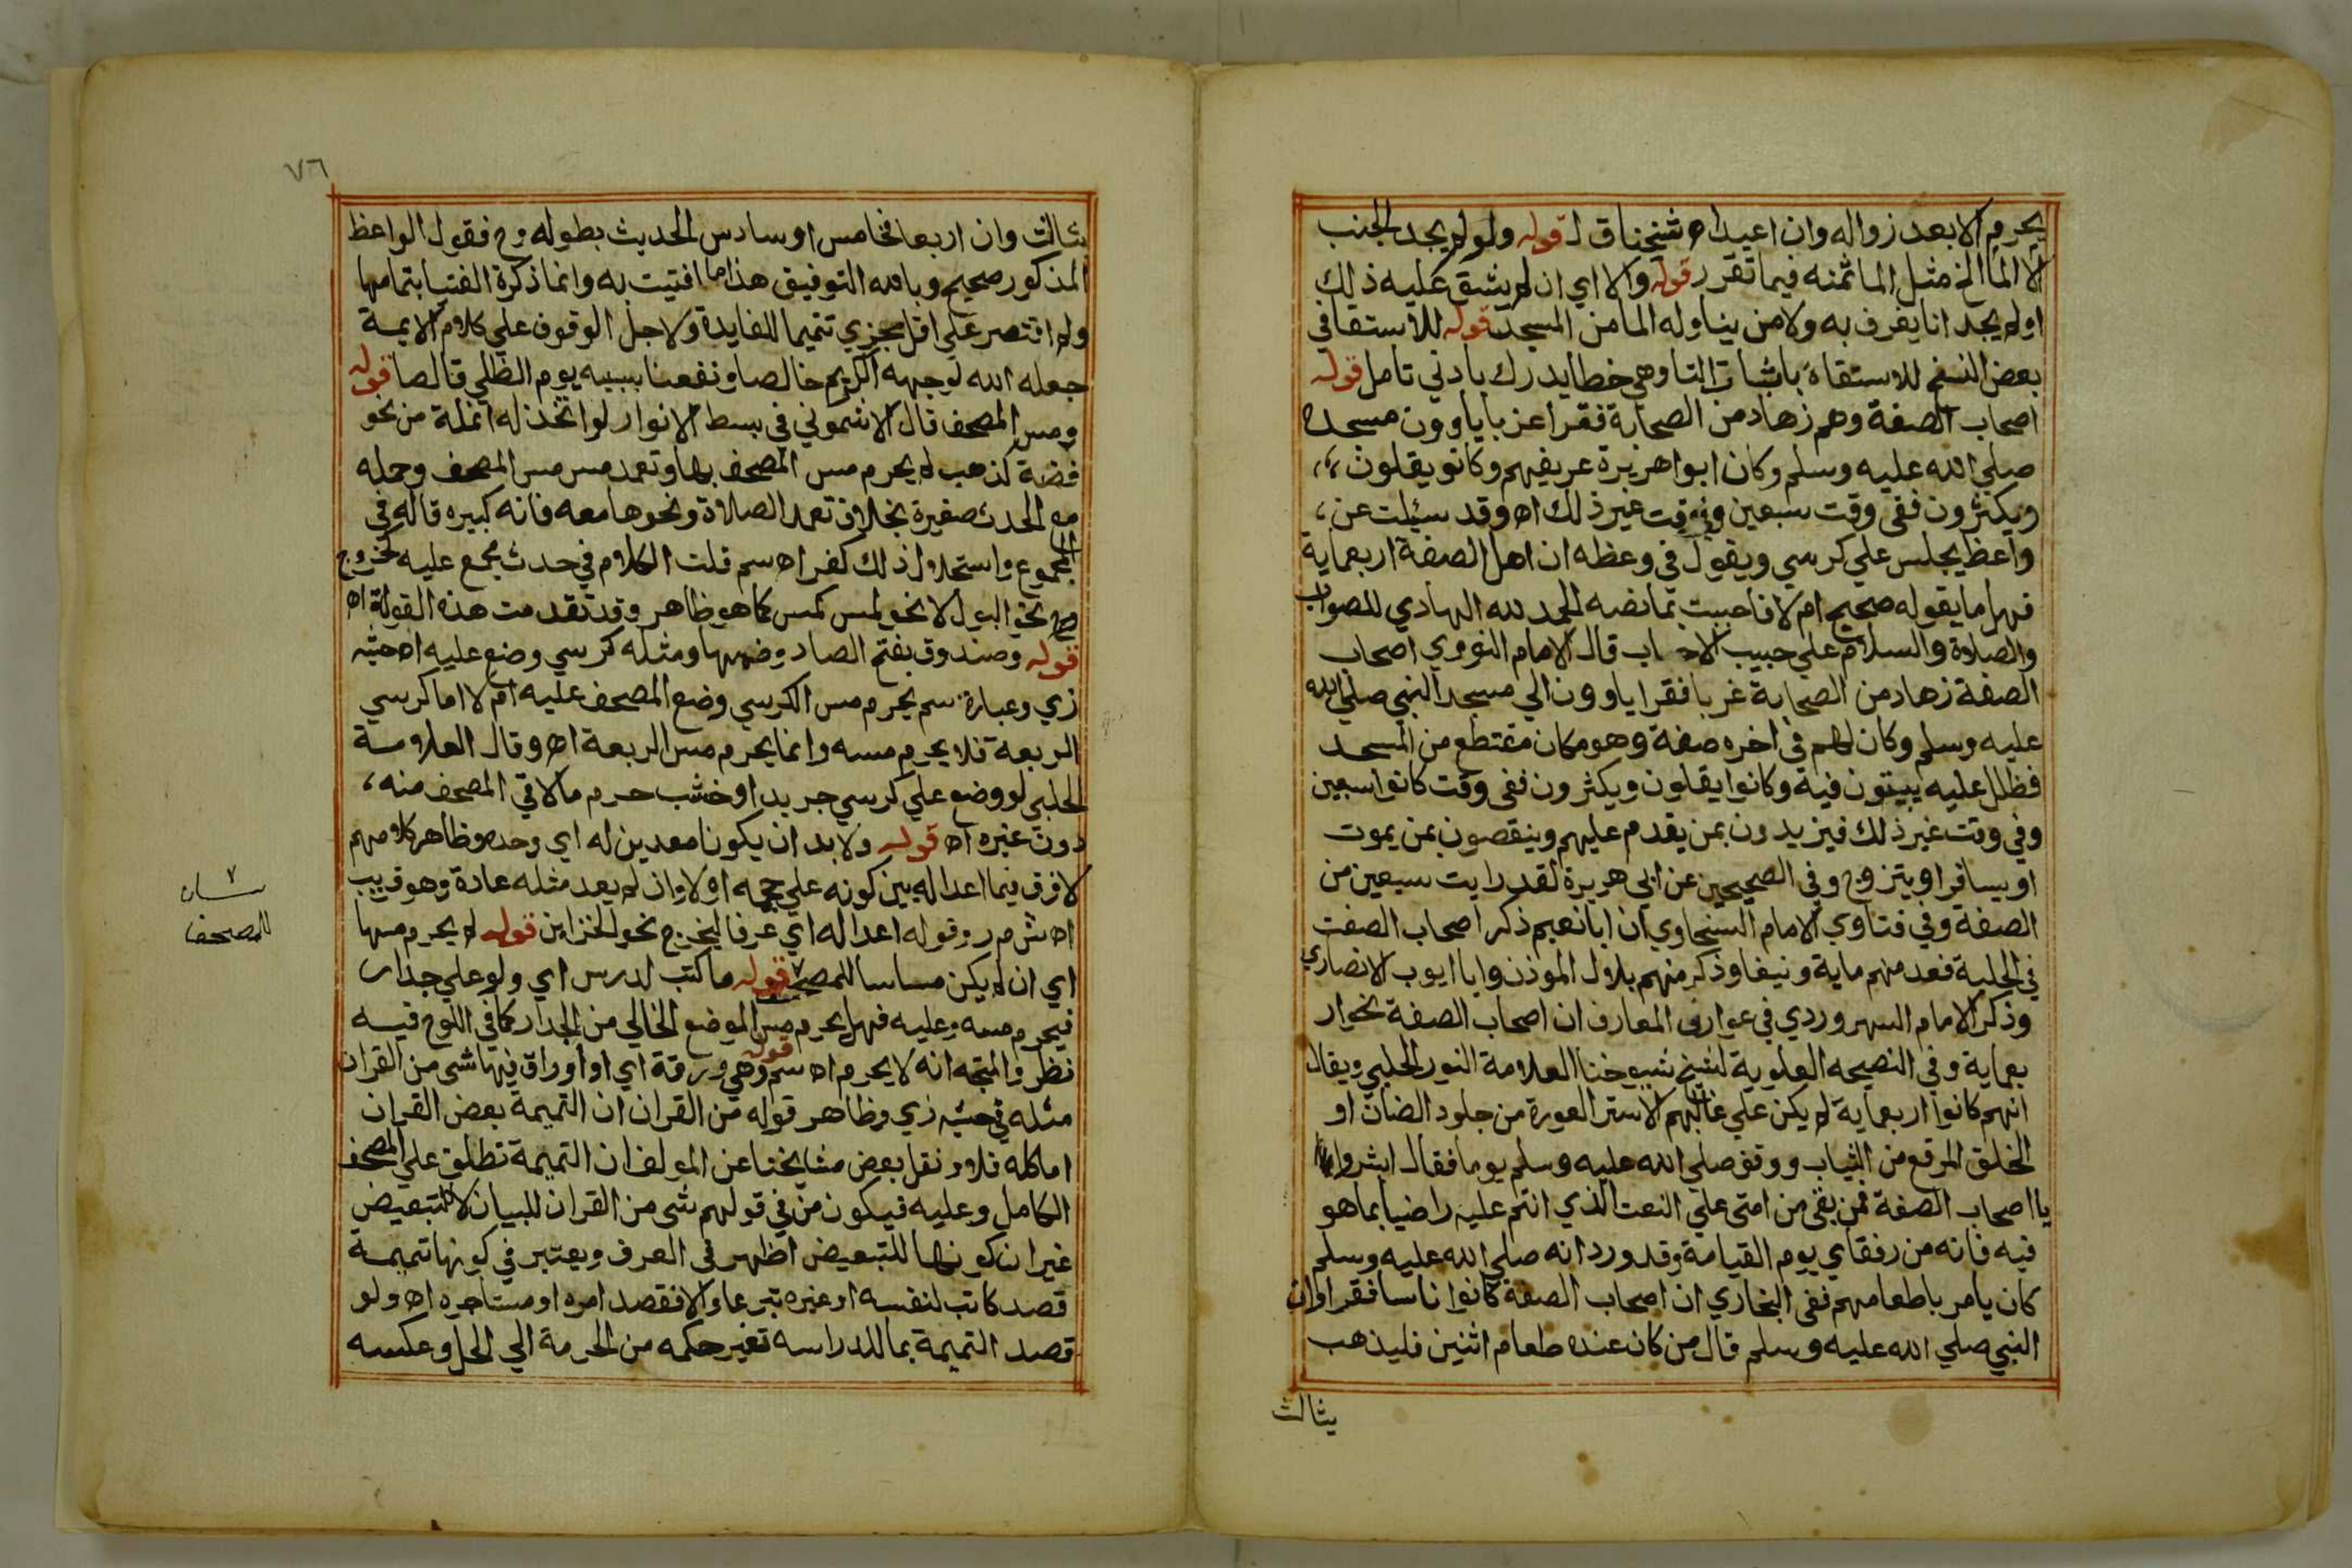 يحرم الا بعد زواله وان اعيد اه شيخنا ق ل قوله ولو لم يجد الجنب
الا الما الخ مثل الما ثمنه فيما تقرر قوله والا اي ان لم يشق عليه ذلك
او لم يجد انا يغرف به ولا من يناوله الما من المسجد قوله للاستقا في
بعض النسخ للاستقاة باثبات التا وهي خطا يدرك بادني تامل قوله
اصحاب الصفة وهم زهاد من الصحابة فقرا غربا ياوون مسجده
صلي الله عليه وسلم وكان ابوا هريرة عريفهم وكانو يقلون
ويكثرون ففي وقت سبعين وفي وقت غير ذلك اه وقد سئلت عن
واعظ يجلس علي كرسي ويقول في وعظه ان اهل الصفة اربعماية
فهل ما يقوله صحيح ام لا فاجبت بما نصه الحمد لله الهادي للصواب
والصلاة والسلام علي حبيب الاحباب قال الامام النووي اصحاب
الصفة زهاد من الصحابة غربا فقرا ياوون الي مسجد النبي صلي الله
عليه وسلم وكان لهم في اخره صفة وهو مكان مقتطع من المسجد
فظلل عليه يبيتون فية وكانوا يقلون ويكثرون ففي وقت كانوا سبعين
وفي وقت غير ذلك فيزيدون بمن يقدم عليهم وينقصون بمن يموت
او يسافر او يتزوج وفي الصحيحين عن ابي هريرة لقد رايت سبعين من
الصفة وفي فتاوي الامام السخاوي ان ابا نعيم ذكر اصحاب الصفت
في الحلية فعد منهم ماية ونيفا وذكر منهم بلال الموذن وابا ايوب الانصاري
وذكر الامام السهروردي في عوارف المعارف ان اصحاب الصفة نحو ار
بعماية وفي النصيحه العلوية لشيخ شيوخنا العلامة النور الحلبي ويقال
انهم كانوا اربعماية لم يكن علي غالبهم الا ستر العورة من جلود الضان او
الخلق المرقع من الثياب ووقف صلي الله عليه وسلم يوما فقال ابشروا
يا اصحاب الصفة فمن بقي من امتي علي النعت الذي انتم عليه راضيا بما هو
فيه فانه من رفقاي يوم القيامة وقد ورد انه صلي الله عليه وسلم
كان يامر باطعامهم ففي البخاري ان اصحاب الصفة كانوا ناسا فقرا وان
النبي صلي الله عليه وسلم قال من كان عنده طعام اثنين فليذهب
بثالث
٧٦
بثالث وان اربعا فخامس او سادس الحديث بطوله وح فقول الواعظ
المذكور صحيح وبالله التوفيق هذا ما افتيت به وانما ذكرة الفتيا بتمامها
ولم اقتصر علي اقل مجزي تتميما للفايدة ولاجل الوقوف علي كلام الايمة
جعله الله لوجهه الكريم خالصا ونفعنا بسببه يوم الظلي قالصا قوله
ومس المصحف قال الاشموني في بسط الانوار لو اتخذ له انملة من نحو
فضة كذهب لم يحرم مس المصحف بها وتعمد مس مس المصحف وحمله
مع الحدث صغيرة بخلاف تعمد الصلاة ونحوها معه فانه كبيره قاله في
المجموع واستحلال ذلك كفر اه سم قلت الكلام في حدث مجمع عليه كخروج
نحو البول لا نحو لمس كمس كما هو ظاهر وقد تقدمت هذه القولة اه
قوله وصندوق بفتح الصاد وضمها ومثله كرسي وضع عليه اه حشيه
زي وعبارة سم يحرم مس الكرسي وضع المصحف عليه ام لا اما كرسي
الربعة فلا يحرم مسه وانما يحرم مس الربعة اه وقال العلامة
الحلبي لو وضع علي كرسي جريد او خشب حرم ما لاقي المصحف منه
دون غيره اه قوله ولا بد ان يكونا معدين له اي وحده وظاهر كلامهم
لا فرق فيما اعد اله بين كونه علي حجمه او لا وان لم يعد مثله عادة وهو قريب
اه ش م ر وقوله اعد اله اي عرفا ليخرج نحو الخزاين قوله لم يحرم مسها
اي ان لم يكن مساسا للمصحف قوله ما كتب لدرس اي ولو علي جدار
فيحرم مسه وعليه فهل يحرم مس الموضع الخالي من الجدار كما في اللوح فيه
نظر والمتجه انه لا يحرم اه سم قوله وهي ورقة اي او اوراق فيها شي من القران
مثله في حشيه زي وظاهر قوله من القران ان التميمة بعض القران
اما كله فلا ونقل بعض مشايخنا عن المولف ان التميمة تطلق علي المصحف
الكامل وعليه فيكون من في قولهم شي من القران للبيان لا للتبعيض
غير ان كونها للتبعيض اظهر في العرف ويعتبر في كونها تميمة
قصد كاتب لنفسه او غيره تبرعا والا فقصد امره او مستاجره اه ولو
قصد التميمة بما للدراسه تغير حكمه من الحرمة الي الحل وعكسه
٧
للمصحف